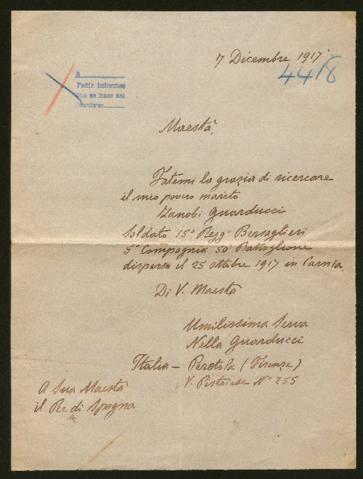 7 Dicembre 1917
4418
A
Pedir informes
que se hace así
Maestà
Fatemi la grazia di ricercare
il mio povero marito
Zanobi Guarducci
Soldato 15° Regg° Bersaglieri
5ª Compagnia 50° Battaglione
disperso il 25 ottobre 1917 in Carnia
Di V. Maestà
Umilissima Serva
Nella Guarducci
Italia - Peretola (Firenze)
V. Pistoiese N° 255
A Sua Maestà
il Re di Spagna